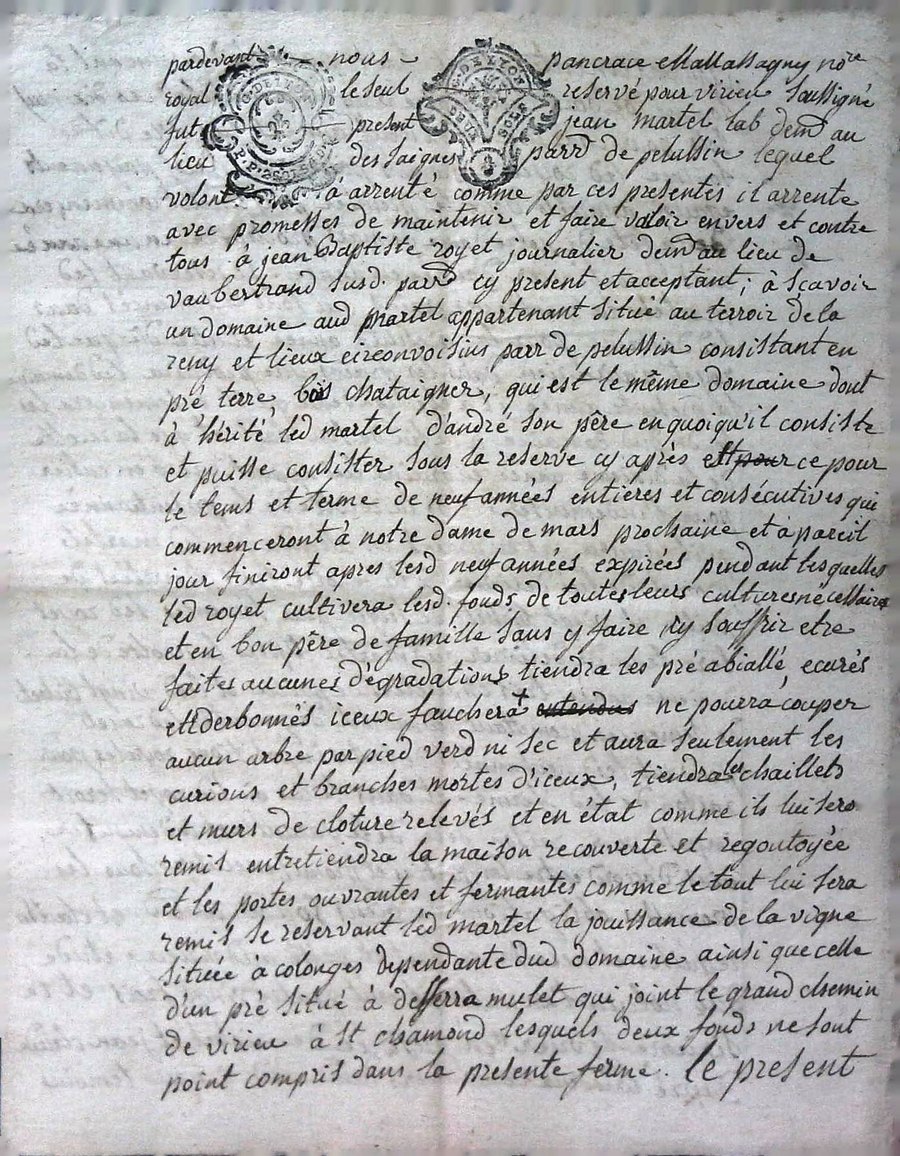 pardevant nous pancrace Mallassagny nore
royal le seul reservé pour virieu soussigné
fut present jean martel lab demt au
lieu des saignes parr de pelussin lequel
volont à arrenté comme par ces presentes il arrente
avec promesses de maintenir et faire valoir envers et contre
tous à jean Baptiste royet journalier demt au lieu de
vaubertrand susd. parr cy present et acceptant, à sçavoir
un domaine aud martel appartenant situé au terroir de la
reny et lieux circonvoisins parr de pelussin consistant en
pré terre bois chataigner, qui est le même domaine dont
à hérité led martel d'andré son pêre en quoiqu'il consiste
et puisse consister sous la reserve cy après et pour ce pour
le tems et terme de neuf années entieres et consécutives qui
commenceront à notre dame de mars prochaine et à pareil
jour finiront apres lesd neuf années expirées pendant lesquelles
led royet cultivera lesd. fonds de toutes leurs cultures nécessaires
et en bon pêre de famille sans y faire ny souffrir etre
faites aucunes dégradations tiendra les pré abiallé, ecurés
et derbonnés iceux fauchera + entendus ne pourra couper
aucun arbre par pied verd ni sec et aura seulement les
curions et branches mortes d'iceux, tiendra les chaillets
et murs de cloture relevés et en état comme ils lui sero
remis entretiendra la maison recouverte et regoutoyée
et les portes ouvrantes et fermantes comme le tout lui sera
remis se reservant led martel la jouissance de la vigne
située à colonges dependante dud domaine ainsi que celle
d'un pré situé à desserra mulet qui joint le grand chemin
de virieu à st chamond lesquels deux fonds ne sont
point compris dans la presente ferme. le present